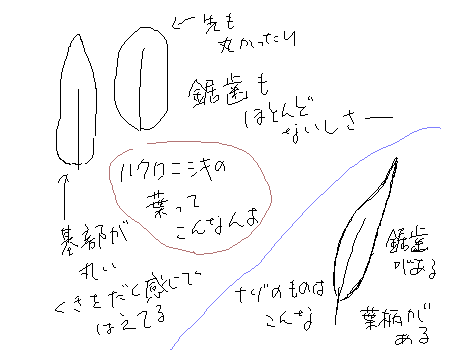 ←先も
丸かったり
鋸歯も
ほとんど
ないしさー
ハクロニシキの
葉って
こんなんよ
基部が
丸い
くきをだく感じで
はえてる
ナゾのものは
こんな
鋸歯
がある
葉柄が
ある